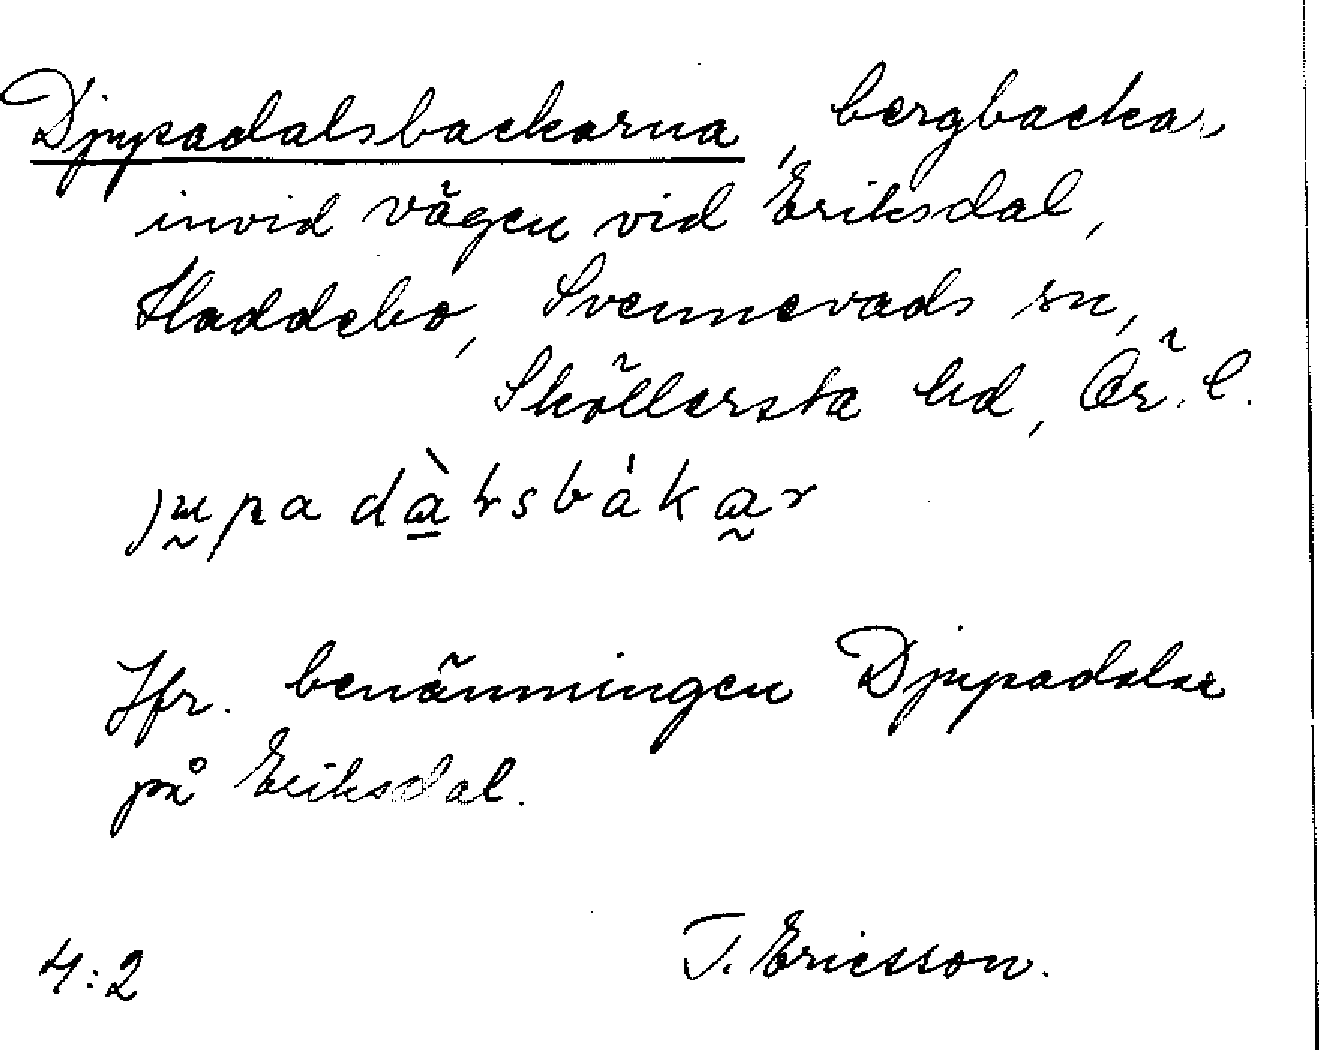 Djupadalsbackarna, bergbackar
invid vägen vid Eriksdal,
Haddebo, Svennevads sn,
Sköllersta hd, Ör. l.
jupadàlsbákar
Jfr. benämningen Djupadalar
på Eriksdal.
4:2 T. Ericsson.